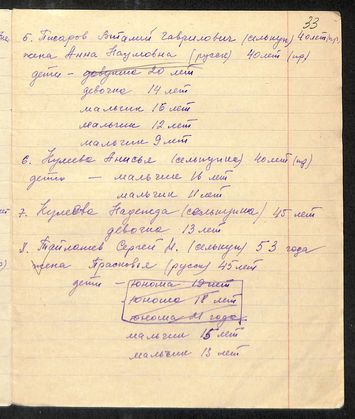 33
5. Писаров Виталий Гаврилович (селькуп) 40 лет (пр.
жена Анна Наумовна (русск) 40 лет (пр)
дети – девушка 20 лет
девочка 14 лет
мальчик 15 лет
мальчик 12 лет
мальчик 9 лет
6. Кулеева Анисья (селькупка) 40 лет (пр)
дети – мальчик 16 лет
мальчик 11 лет
7. Кулеева Надежда (селькупка) 45 лет
девочка 13 лет
8. Сергей И. (селькуп) 53 года
жена Прасковья (русск) 45 лет
дети – юноша 19 лет
юноша 18 лет
юноша 21 года
мальчик 15 лет
мальчик 13 лет